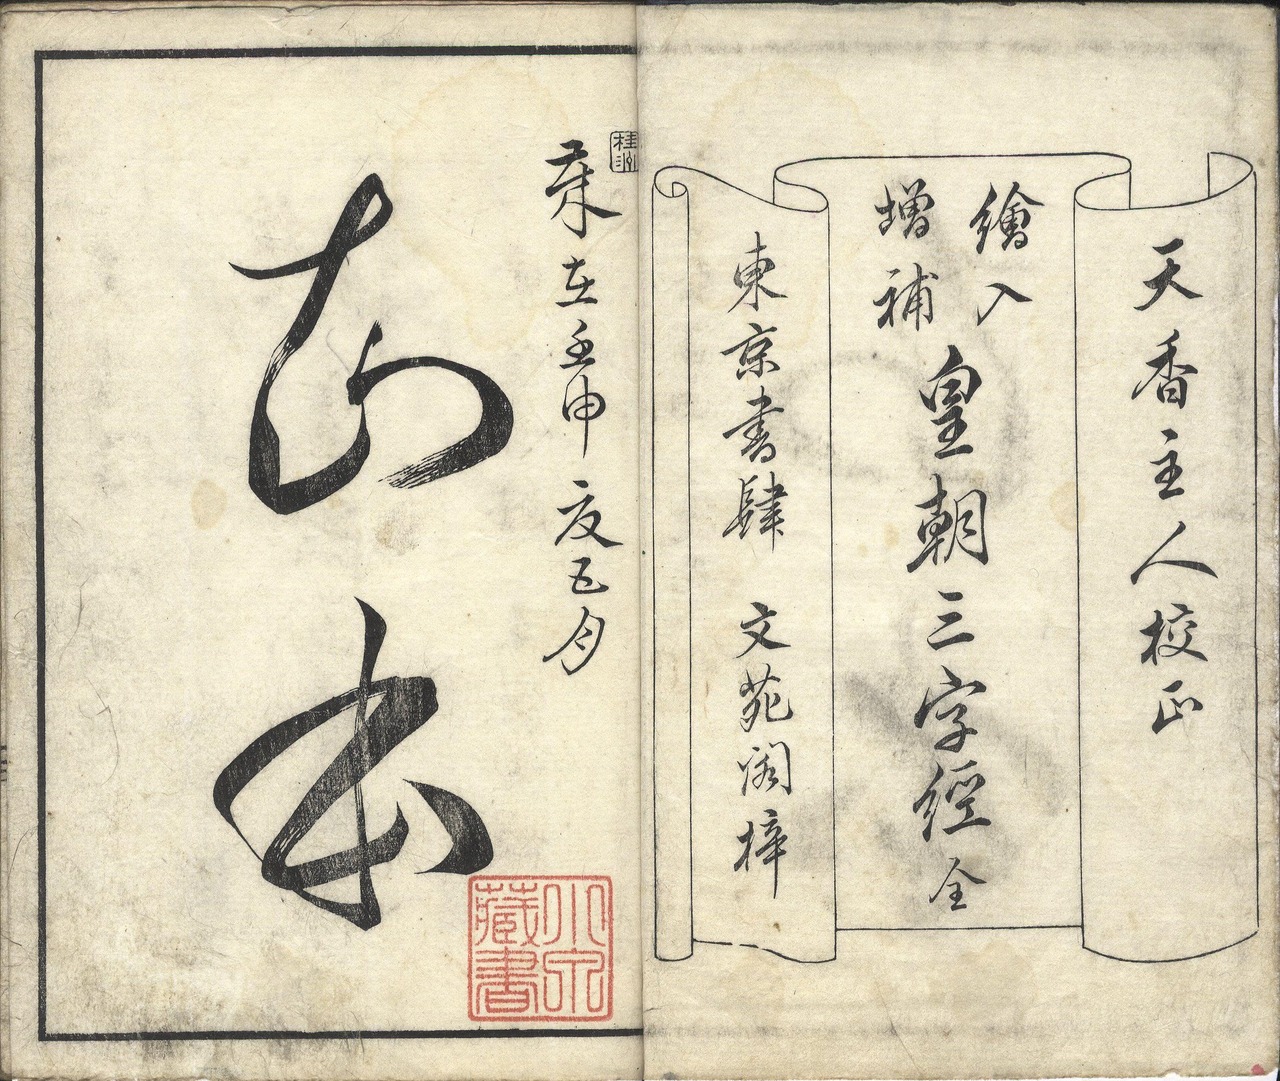 天香主人校正
繪入
増補
皇朝三字經 全
東京書肆 文苑閣梓
歳在壬申夏五月
知本
小泉
藏書